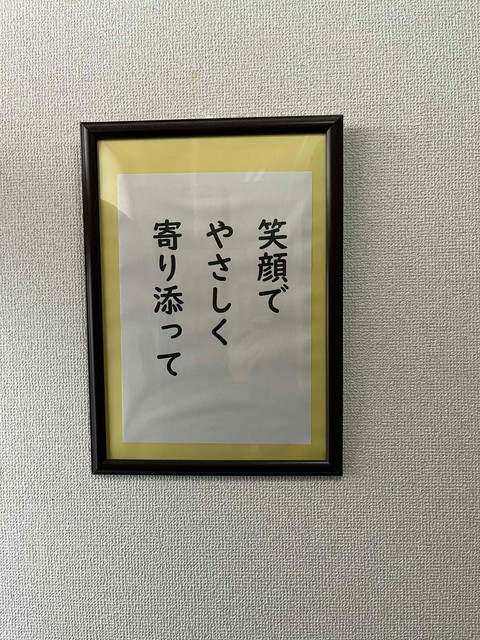 笑顔で
やさしく
寄り添って